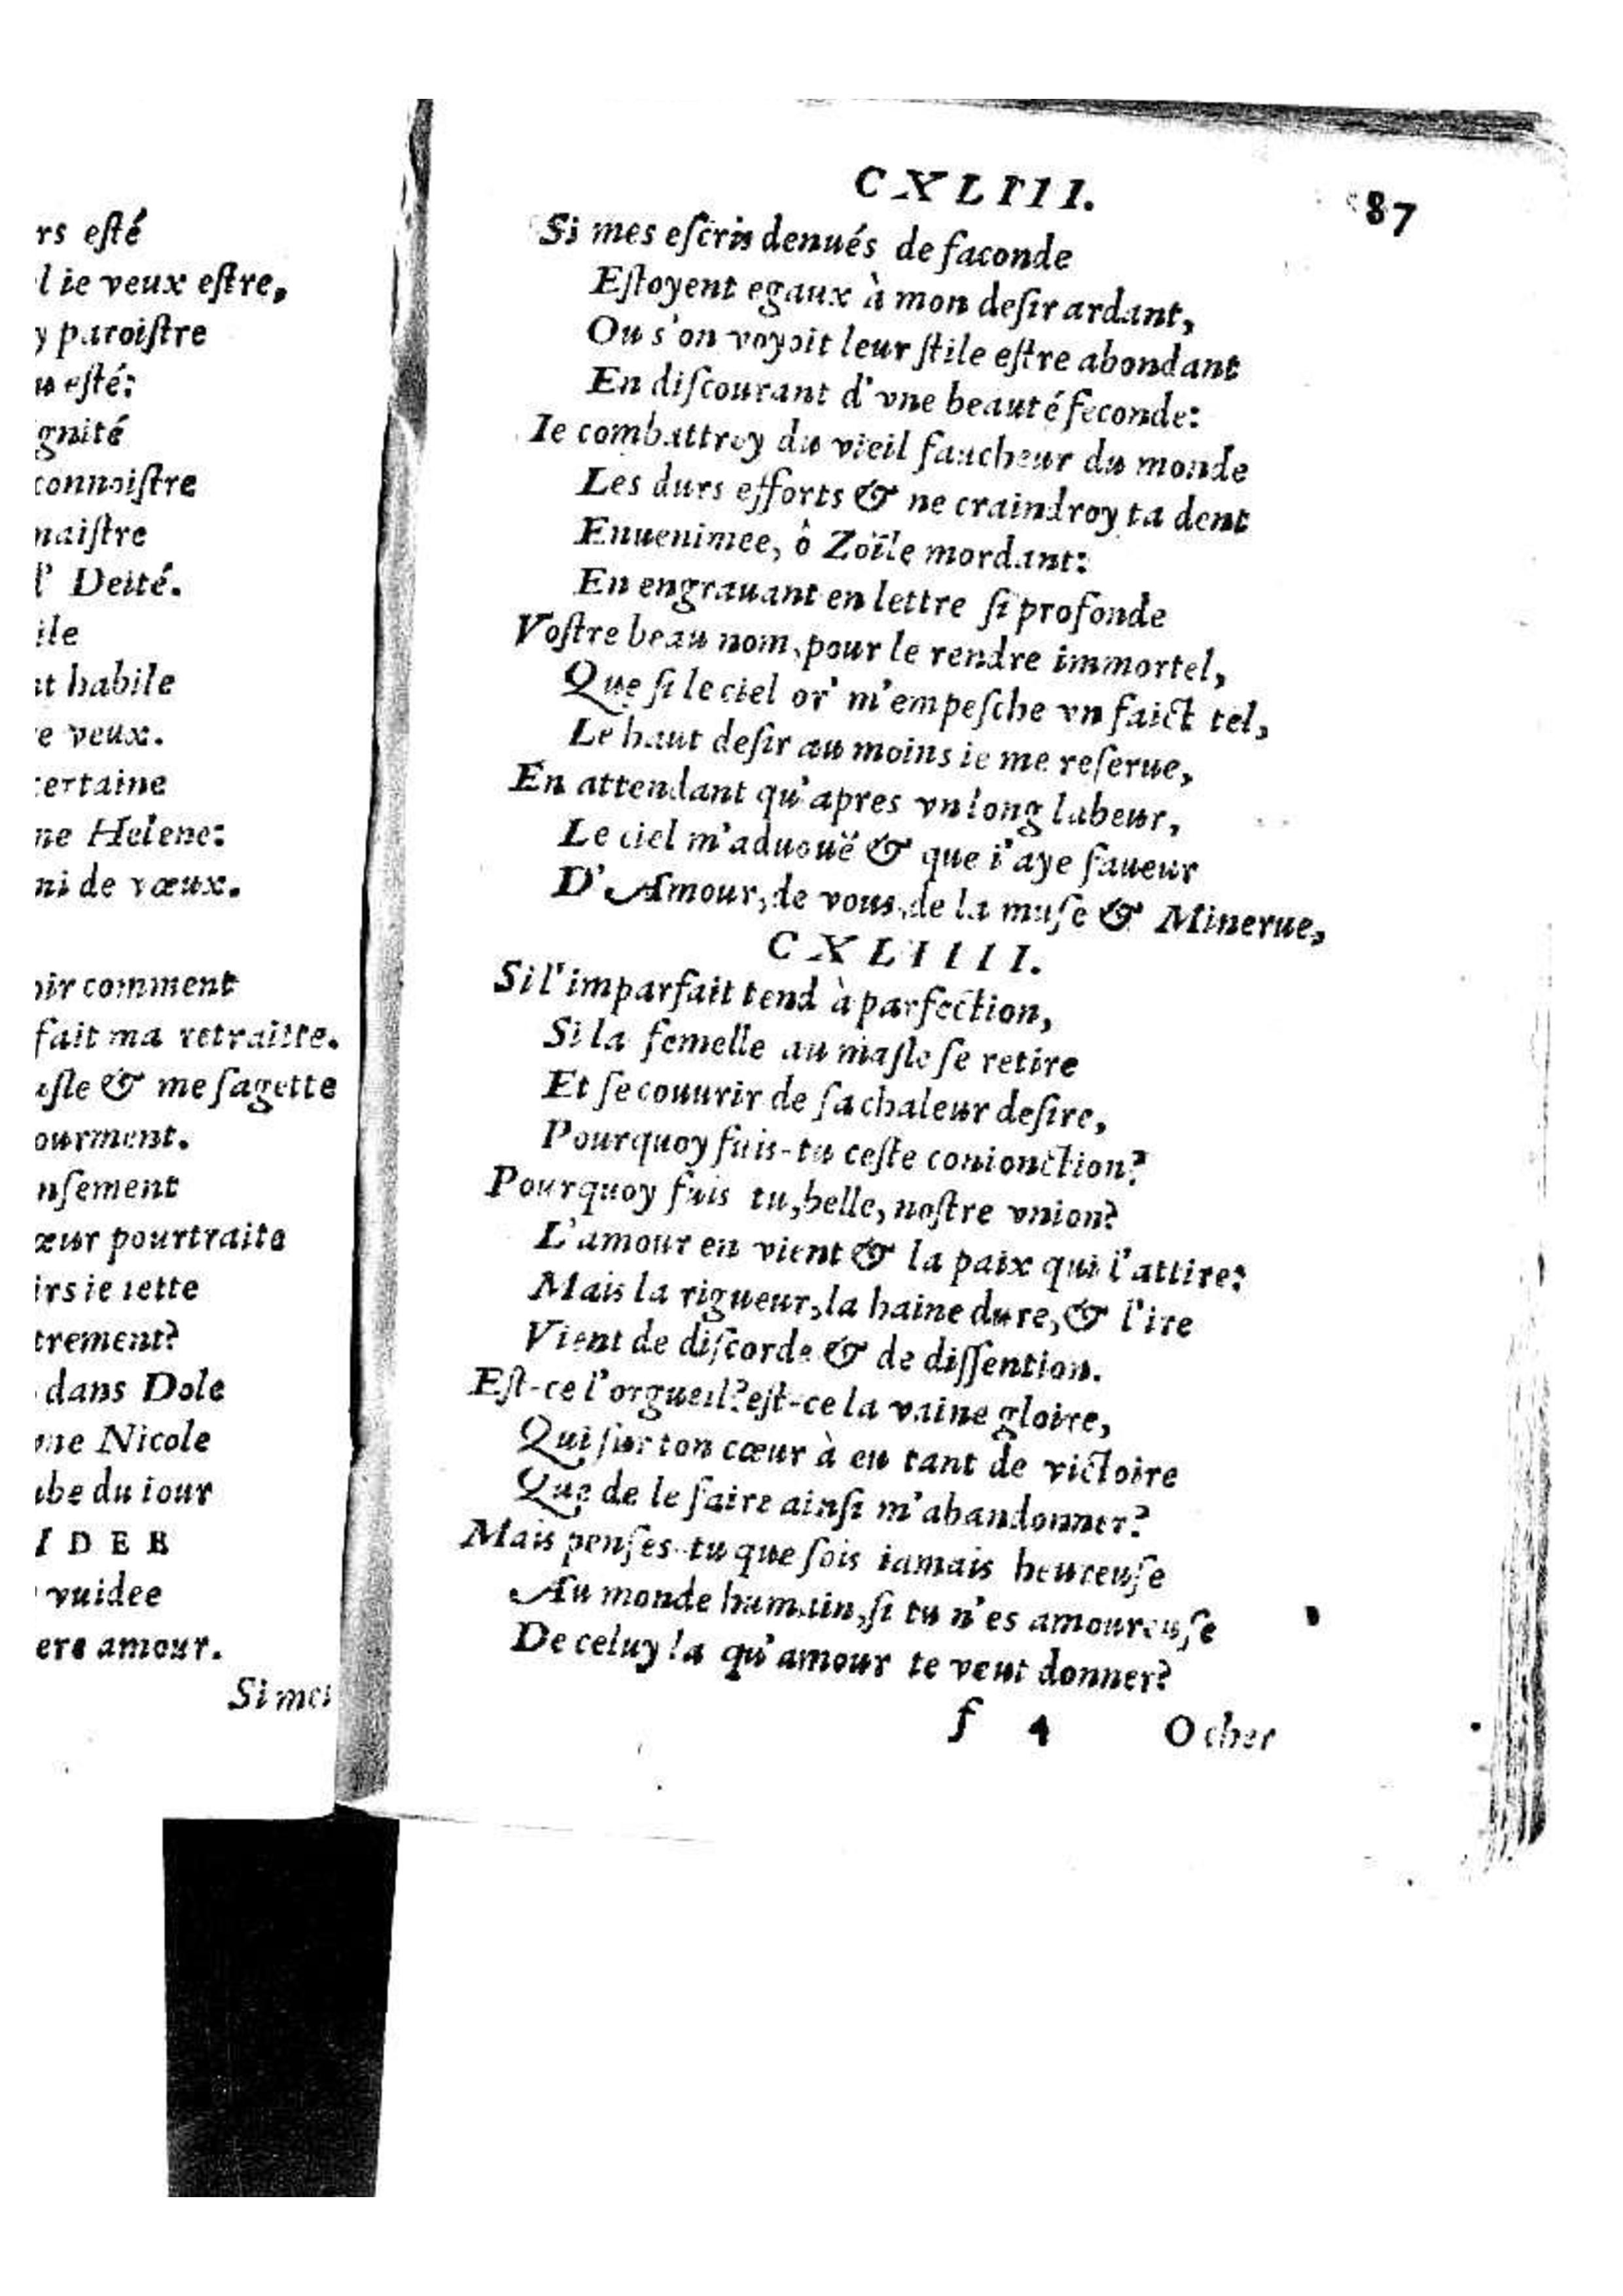 rs eſté
l ie veux eſtre,
y paroiſtre
u eſté:
gnité
connoiſtre
maiſtre
l' Deité.
ile
nt habile
re veux.
certaine
ne Helene:
ni de vœux.
oir comment
fait ma retraitte.
aſle & me ſagette
ourment.
nſement
œur pourtraite
irs ie iette
trement?
dans Dole
vne Nicole
ube du iour
I D E E
vuidee
ere amour.
Si mes
87
CXLIII.
Si mes eſcris denués de faconde
Eſtoyent egaux à mon deſir ardant,
Ou s'on voyoit leur ſtile eſtre abondant
En diſcourant d'vne beauté feconde:
Ie combattroy du vieil faucheur du monde
Les durs efforts & ne craindroy ta dent
Enuenimee, ô Zoïle mordant:
En engrauant en lettre ſi profonde
Voſtre beau nom, pour le rendre immortel,
Que ſi le ciel or' m'empeſche vn faict tel,
Le haut deſir au moins ie me reſerue,
En attendant qu'apres vn long labeur,
Le ciel m'aduouë & que i'aye faueur
D'Amour, de vous, de la muſe & Minerue,
CXLIIII.
Si l'imparfait tend à parfection,
Si la femelle au maſle ſe retire
Et ſe couurir de ſa chaleur deſire,
Pourquoy fuis-tu ceſte conionction?
Pourquoy fuis tu, belle, noſtre vnion?
L'amour en vient & la paix qui l'attire:
Mais la rigueur, la haine dure, & l'ire
Vient de diſcorde & de diſſention.
Eſt-ce l'orgueil? eſt-ce la vaine gloire,
Qui ſur ton cœur à eu tant de victoire
Que de le faire ainſi m'abandonner?
Mais penſes-tu que ſois iamais heureuſe
Au monde humain, ſi tu n'es amoureuſe
De celuy la qu'amour te veut donner?
f 4 O cher